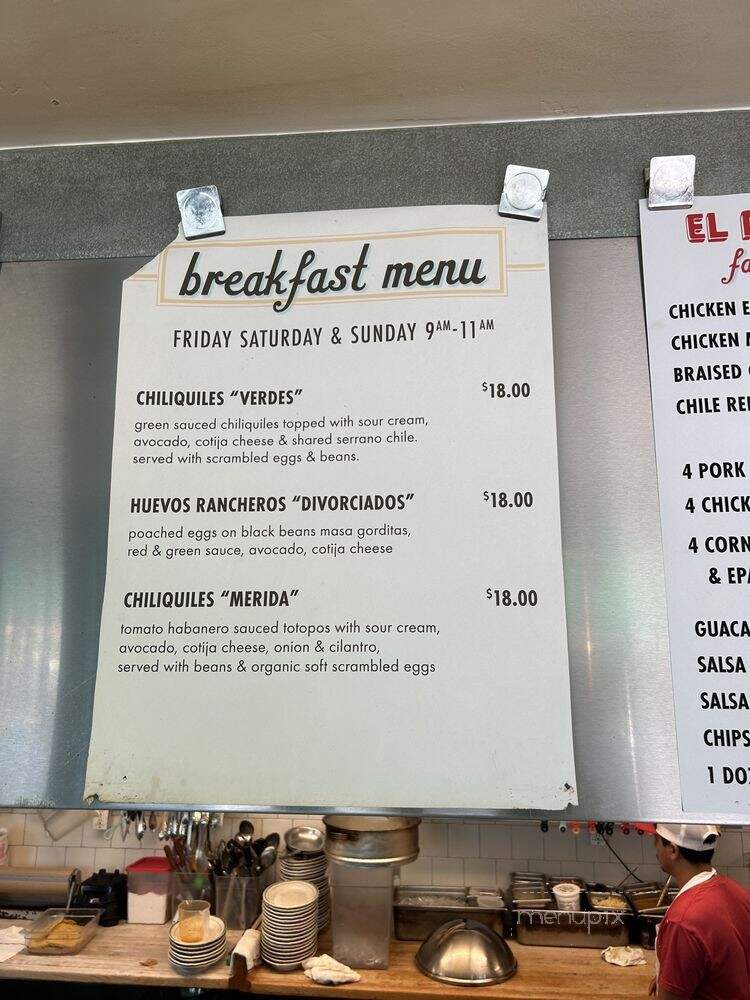 breakfast menu
FRIDAY SATURDAY & SUNDAY 9AM-11AM
CHILIQUILES "VERDES" $18.00
green sauced chiliquiles topped with sour cream,
avocado, cotija cheese & shared serrano chile.
served with scrambled eggs & beans.
HUEVOS RANCHEROS "DIVORCIADOS" $18.00
poached eggs on black beans masa gorditas,
red & green sauce, avocado, cotija cheese
CHILIQUILES "MERIDA" $18.00
tomato habanero sauced totopos with sour cream,
avocado, cotija cheese, onion & cilantro,
served with beans & organic soft scrambled eggs
EL
CHICKEN
CHICKEN
BRAISED
CHILE
4 PORK
4
4
&
SALSA
SALSA
CHIPS
1
menupix